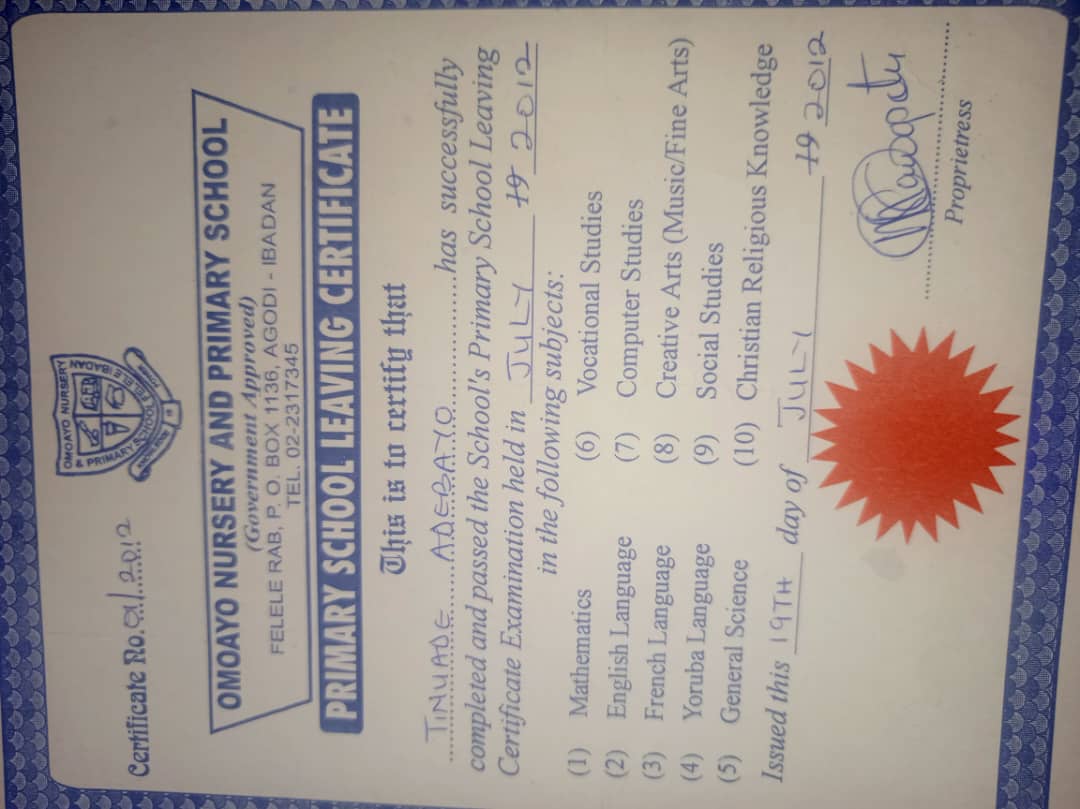 OMOAYO NURSERY
& PRIMARY SCHOOL
Certificate No. 01/2012
OMOAYO NURSERY AND PRIMARY SCHOOL
(Government Approved)
FELELE RAB, P. O. BOX 1136, AGODI - IBADAN
TEL. 02-2317345
PRIMARY SCHOOL LEAVING CERTIFICATE
This is to certify that
TINUADE ADEBAYO has successfully
completed and passed the School's Primary School Leaving
Certificate Examination held in JULY 19 2012
in the following subjects:
(1) Mathematics
(2) English Language
(3) French Language
(4) Yoruba Language
(5) General Science
(6) Vocational Studies
(7) Computer Studies
(8) Creative Arts (Music/Fine Arts)
(9) Social Studies
(10) Christian Religious Knowledge
Issued this 19TH day of JULY 19 2012
Proprietress